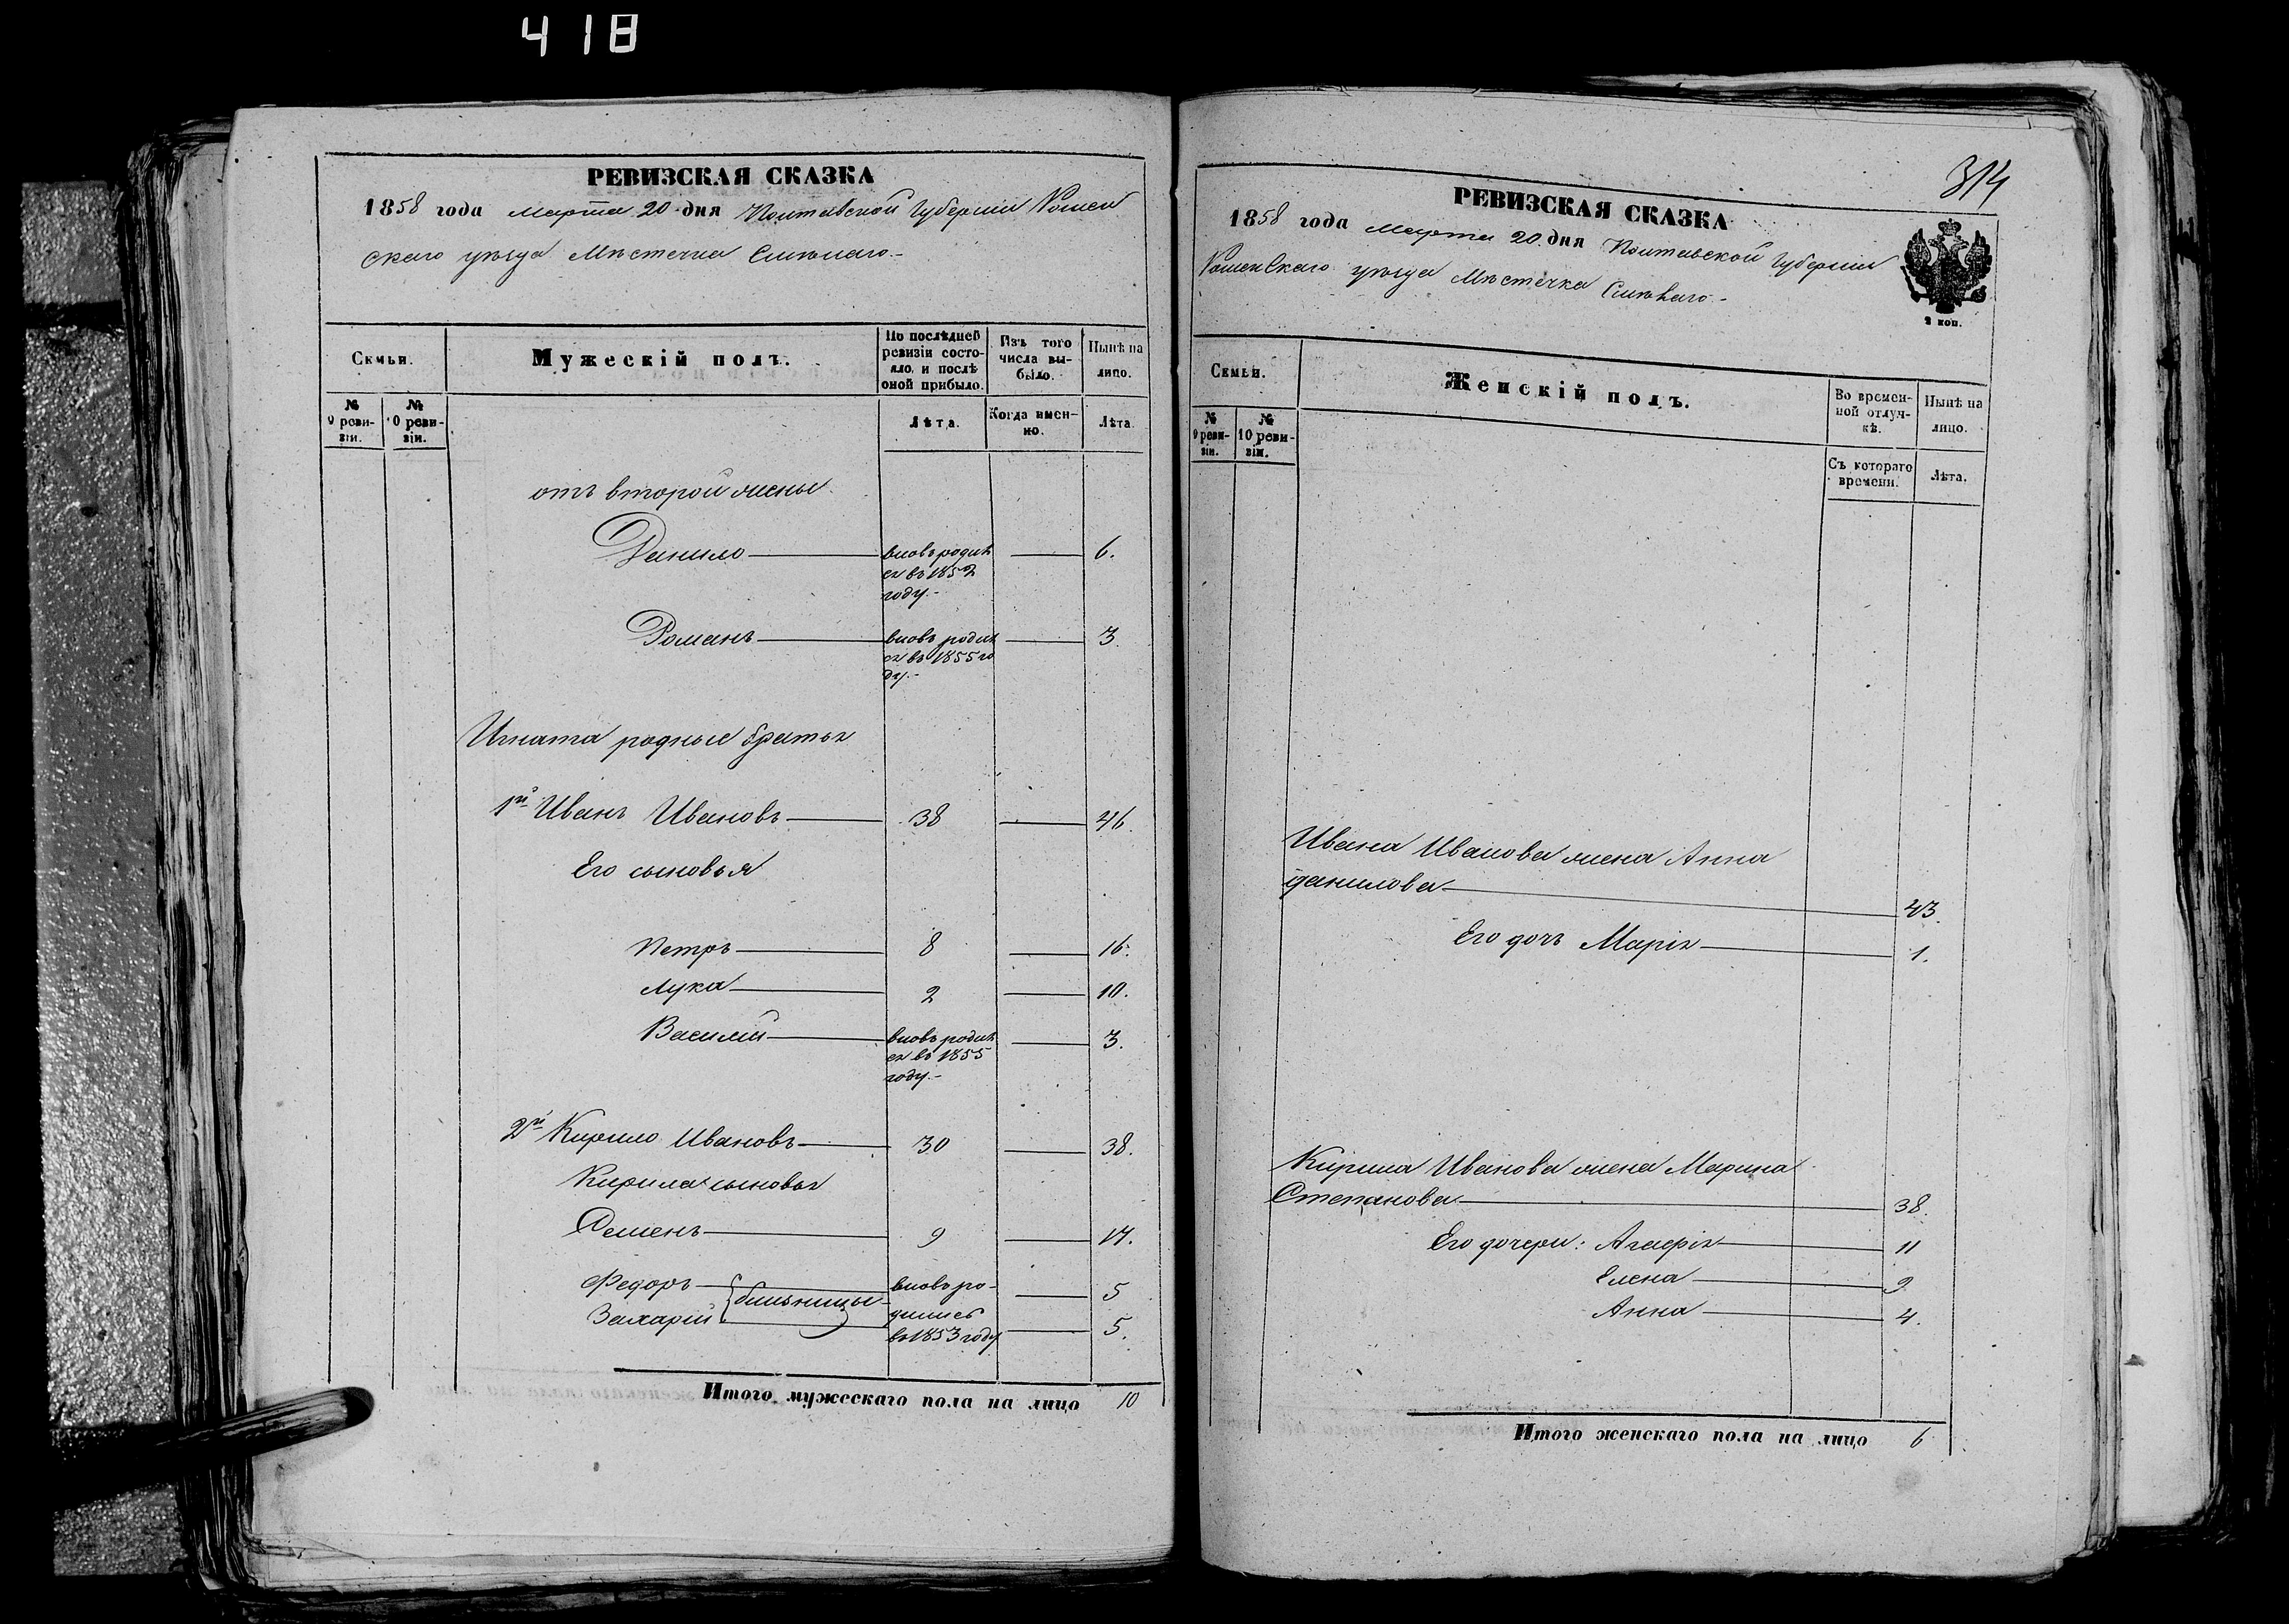 418
РЕВИЗСКАЯ СКАЗКА
1858 года Марта 20 дня Полтавской Губернии Ромен
скаго уѣзда Мѣстечка Смѣлаго.-
Семьи.
Мужескій полъ.
По послѣдней ревизіи состояло, и послѣ оной прибыло.
Изъ того числа выбыло.
Нынѣ на лицо.
№ 9 ревизіи.
№ 10 ревизіи.
Лѣта.
Когда именно.
Лѣта.
отъ второй жены
Данило вновь родил 6.
ся въ 1852
году.-
Романъ вновь родил 3
ся въ 1855 го
ду.-
Игната родные братья
1й Иванъ Ивановъ 38 46.
Его сыновья
Петръ 8 16.
Лука 2 10.
Василій вновь родил 3.
ся въ 1855
году.-
2й Кирило Ивановъ 30 38.
Кирила сыновья
Семенъ 9 17.
Федоръ близницы вновь ро- 5
Захарій дились 5.
въ 1853 году
Итого мужескаго пола на лицо 10
314
РЕВИЗСКАЯ СКАЗКА
1858 года Марта 20 дня Полтавской Губернии
Роменскаго уѣзда Мѣстечка Смѣлаго.-
2 коп.
Семьи.
Женскій полъ.
Во временной отлучкѣ.
Нынѣ на лицо.
№ 9 ревизіи.
№ 10 ревизіи.
Съ котораго времени.
Лѣта.
Ивана Иванова жена Анна
Данилова 43.
Его дочь Марія 1.
Кирила Иванова жена Марина
Степанова 38.
Его дочери: Агафія 11
Елена 9.
Анна 4.
Итого женскаго пола на лицо 6